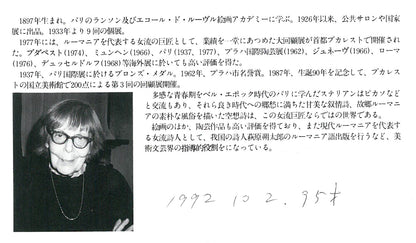 1897年生まれ。パリのランソン及びエコール・ド・ルーヴル絵画アカデミーに学ぶ。1926年以来、公共サロンや国家
展に出品。1933年より9回の個展。
1977年には、ルーマニアを代表する女流の巨匠として、業績を一堂にあつめた大回顧展が首都ブカレストで開催され
た。ブダペスト(1974)、ミュンヘン(1966)、パリ(1937, 1977)、プラハ国際陶芸展(1962)、ジュネーヴ(1966)、ローマ
(1976)、デュッセルドルフ(1968)等海外展に於いても高い評価を得た。
1937年、パリ国際展に於けるブロンズ・メダル。1962年、プラハ市名誉賞。1987年、生誕90年を記念して、ブカレス
トの国立美術館で200点による第3回の回顧展開催。
多感な青春期をベル・エポック時代のパリに学んだステリアンはピカソなど
と交流もあり、それら良き時代への郷愁に満ちた甘美な叙情詩、故郷ルーマニ
アの素朴な風俗を描いた空想詩は、この女流巨匠ならではの世界である。
絵画のほか、陶芸作品も高い評価を得ており、また現代ルーマニアを代表す
る女流詩人として、我国の詩人萩原朔太郎のルーマニア語出版を行うなど、美
術文芸界の指導的役割をになっている。
1992 10 2. 95才